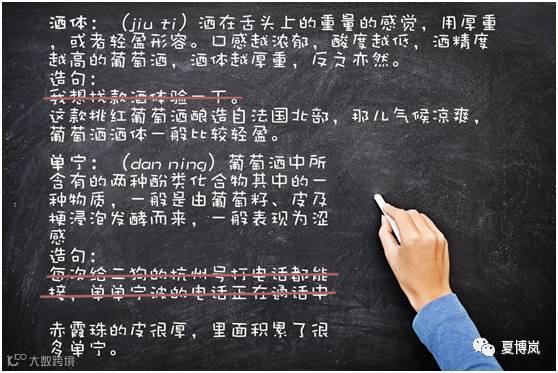 酒体：（jiu ti）酒在舌头上的重量的感觉，用厚重
，或者轻盈形容。口感越浓郁，酸度越低，酒精度
越高的葡萄酒，酒体越厚重，反之亦然。
造句：
我想找款酒体验一下。
这款桃红葡萄酒酿造自法国北部，那儿气候凉爽，
葡萄酒酒体一般比较轻盈。
单宁：（dan ning）葡萄酒中所
含有的两种酚类化合物其中的一
种物质，一般是由葡萄籽、皮及
梗浸泡发酵而来，一般表现为涩
感
造句：
每次给二狗的杭州号打电话都能
接，单单宁波的电话正在通话中
赤霞珠的皮很厚，里面积累了很
多单宁。
大数跨境
夏博岚